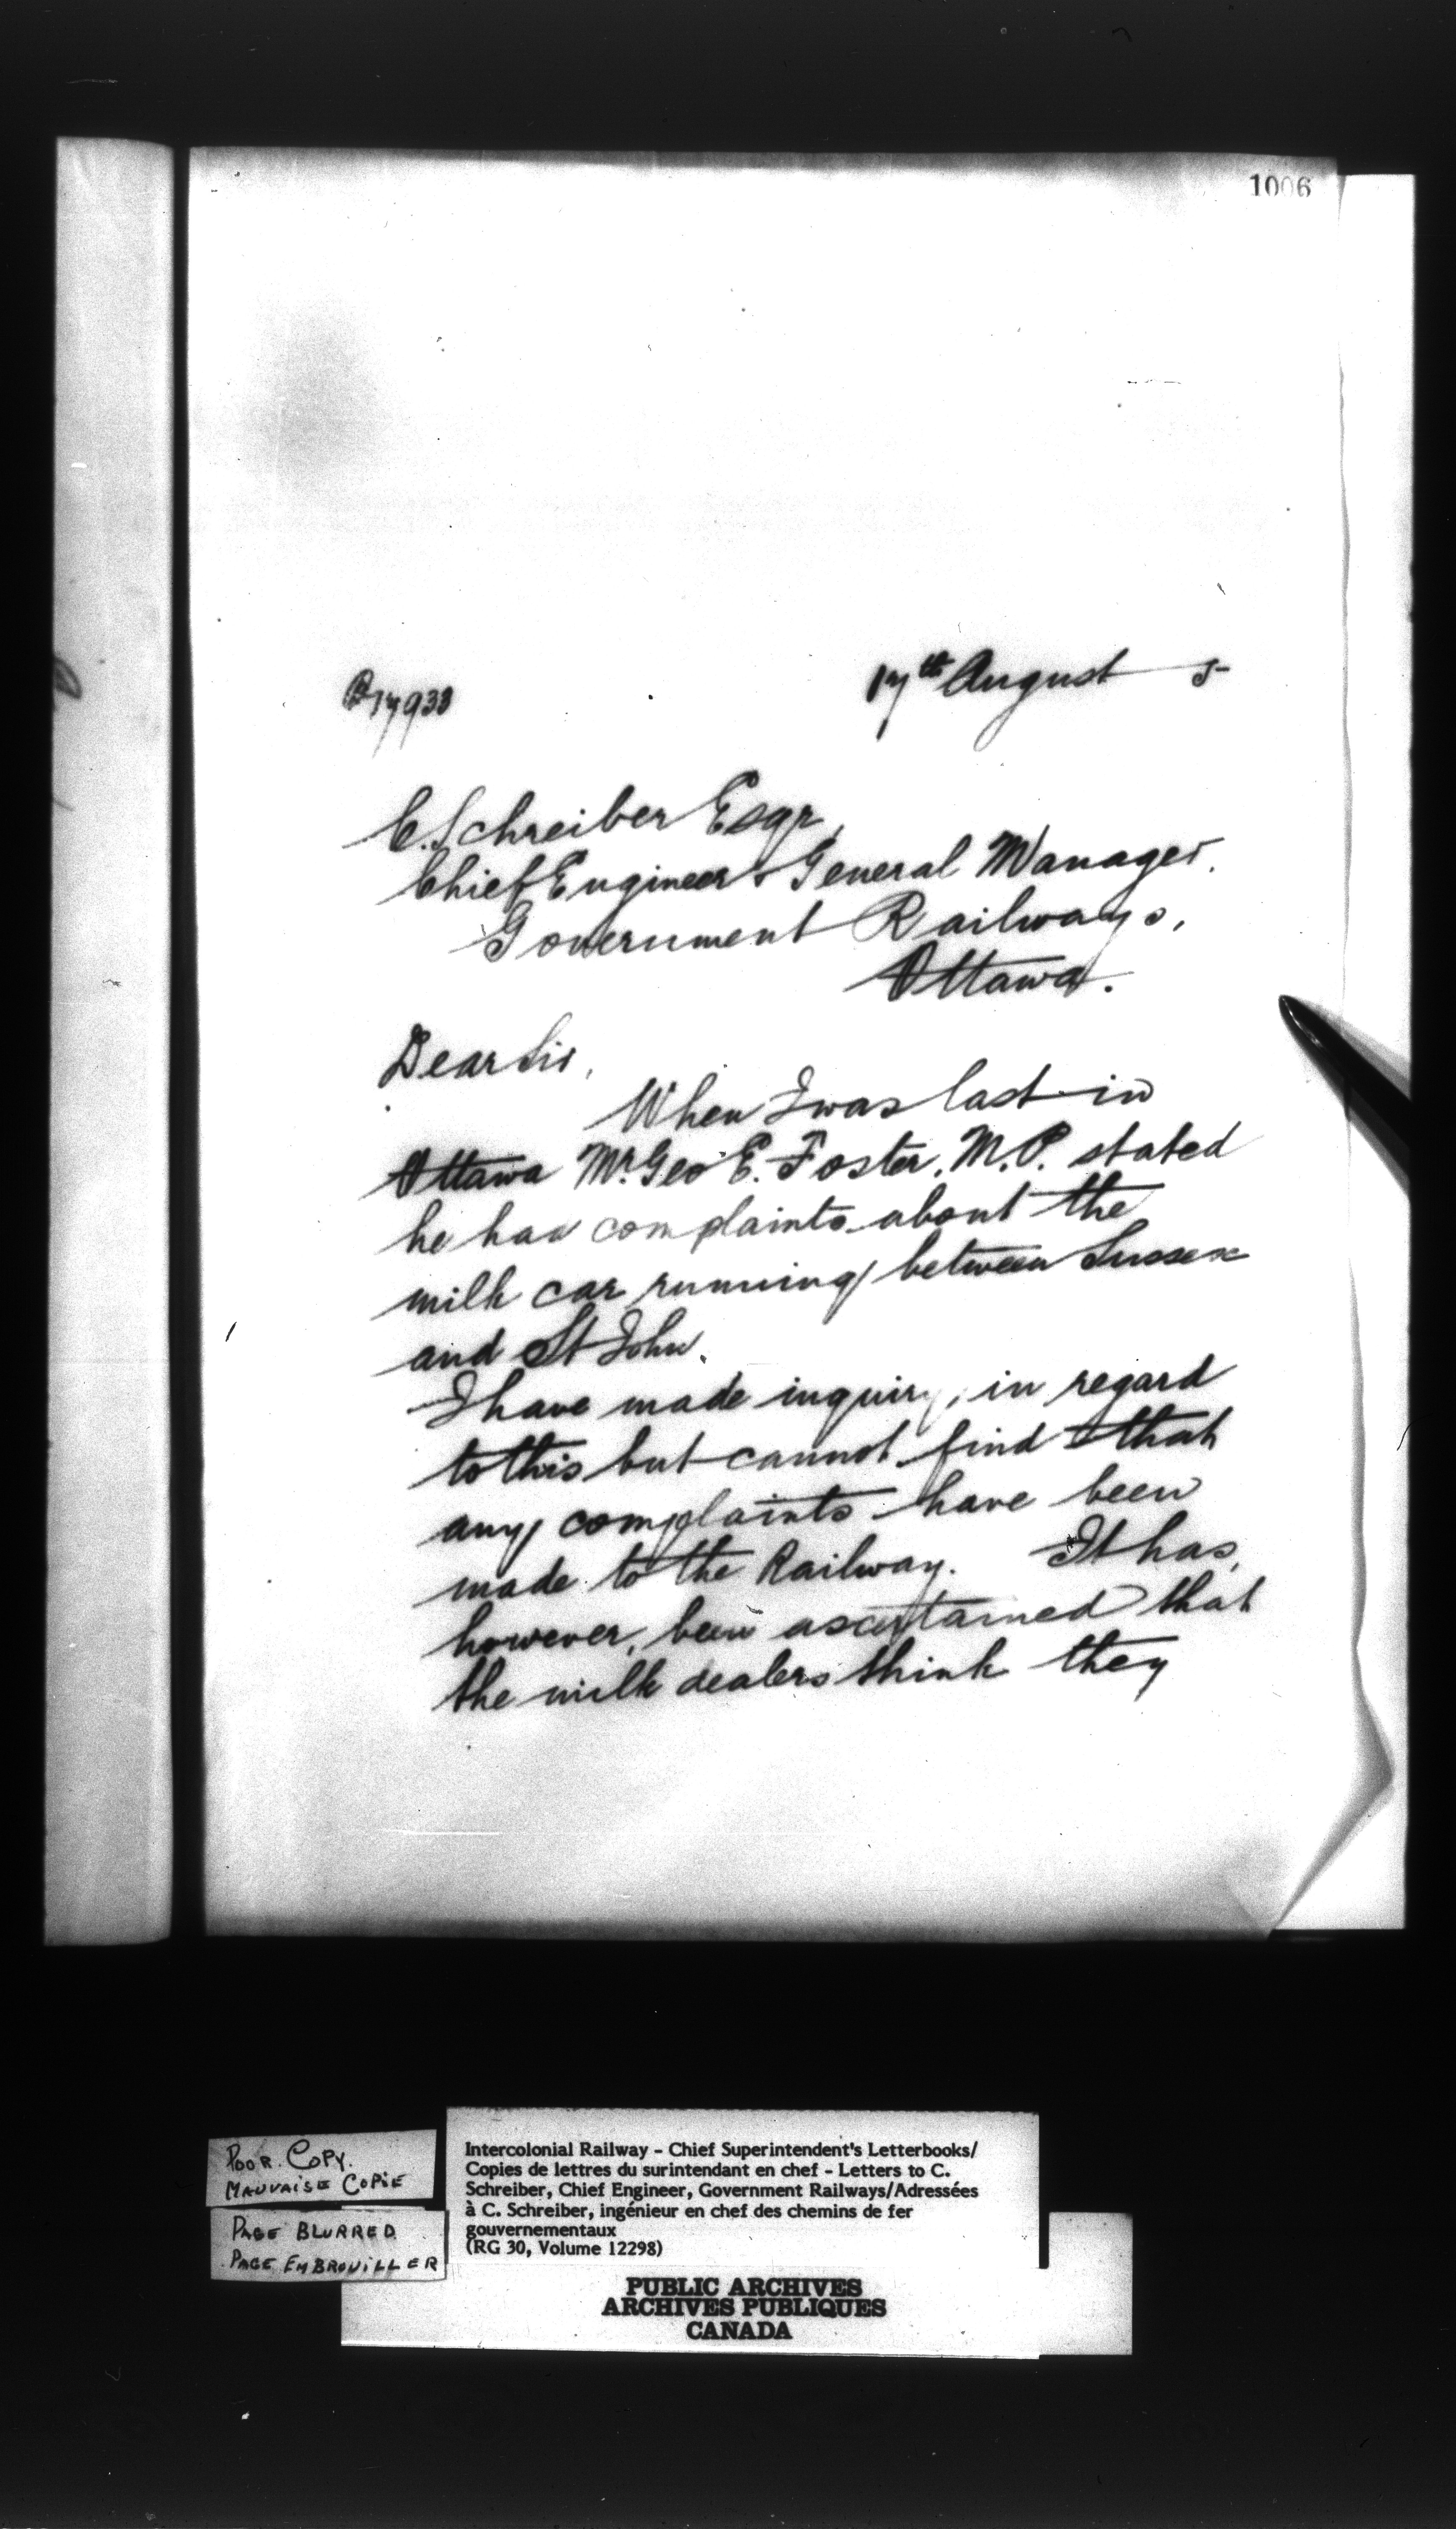 1006
17th August 5
17933
C. Schreiber Esqr,
Chief Engineer & General Manager.
Government Railways,
Ottawa.
Dear Sir,
When I was last in
Ottawa Mr. Geo E. Foster, M.P. stated
he had complaints about the
milk car running between Sussex
and St John.
I have made inquiry, in regard
to this but cannot find that
any complaints have been
made to the Railway. It has,
however, been ascertained that
the milk dealers think they
POOR COPY.
MAUVAISE COPIE
PAGE BLURRED
PAGE EMBROUILLER
Intercolonial Railway - Chief Superintendent's Letterbooks/
Copies de lettres du surintendant en chef - Letters to C.
Schreiber, Chief Engineer, Government Railways/Adressées
à C. Schreiber, ingénieur en chef des chemins de fer
gouvernementaux
(RG 30, Volume 12298)
PUBLIC ARCHIVES
ARCHIVES PUBLIQUES
CANADA